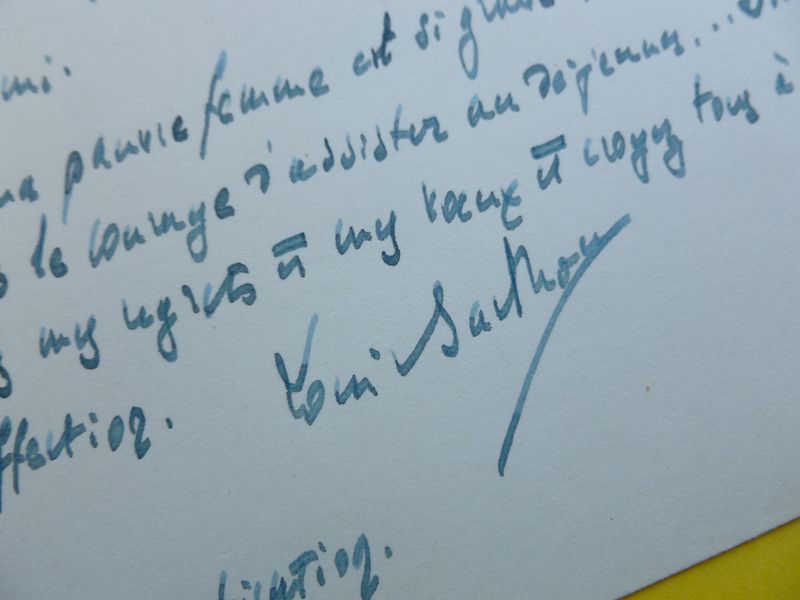 mi.
ma pauvre femme est si grave
le courage d'assister au déjeuner...
mes regrets et mes vœux et croyez tous à
affection.
Louis Barthou